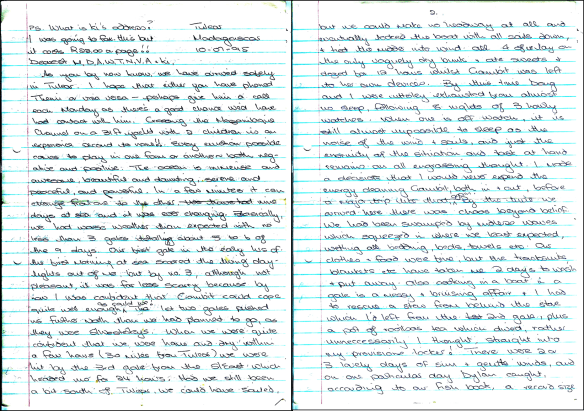 PS. What is Ki's address? Tulear
I was going to fax this but Madagascar
it costs R52.00 a page!! 10-01-95
Dearest M, D, A, W, T, N, V A + Ki
As you by now know we have arrived safely
in Tulear. I hope that either you have phoned
or vica versa - perhaps give him a call
each Monday as there's a good chance he'd have
had contact with him. Crossing the Mozambique
Channel on a 31ft yacht with 2 children is an
experience
came to play in one form or another both neg-
ative and positive. The ocean is immense and
awesome, beautiful and daunting, serene and
peaceful, and powerful. In a few minutes it can
change from one to the other.
days at sea and it was ever changing. Generally,
we had worse weather than expected with no
less than 3 gales totalling about 5 or 6 of
the 9 days. Our first gale in the early hrs of
the first morning at sea scared the living day-
lights out of us, but by no. 3, although not
pleasant, it was far less scary because by
now I was confident that Gambit could cope
quite well enough, as could we! We let two gales pushed
us further north than we had planned to go, as
they were
confident that we were home and dry within
a few hours (30 miles from Tulear) we were
hit by the 3rd gale from the SE
headed us for 24 hours. Had we still been
a bit south of Tulear, we could have sailed,
2.
but we could make no headway at all and
eventually tacked the boat with all sails down,
+ tied the
the only vaguely dry bunk + ate sweets +
dozed for 12 hours whilst Gambit was left
to his own devices. By this time Guy
and I were utterly exhausted from almost
no sleep, following 8 nights of 3 hourly
watches. When one is off watch, it is
still almost impossible to sleep as the
noise of the wind + sails, and just the
enormity of the situation and task at hand
remains an all engrossing thought. I made
a decision that I would
energy cleaning Gambit, both in + out, before
a major trip like that again. By the time we
arrived here there was chaos beyond belief.
We had been swamped by waves
which squeezed in where we least expected,
wetting all bedding, birds, towels etc. Our
clothes + food were fine, but the
blankets etc have taken me 2 days to wash
+ put away. Also cooking in a boat in a
gale is a messy + bruising affair + I had
to rescue a stew from behind the stove
which I'd left from the 2nd gale, plus
a pot of rooibos tea which dived, rather
unnecessarily I thought, straight into
my provisions locker! There were 2 or
3 lovely days of sun + gentle winds, and
on one particular day Dylan caught,
according to our fish book, a record size